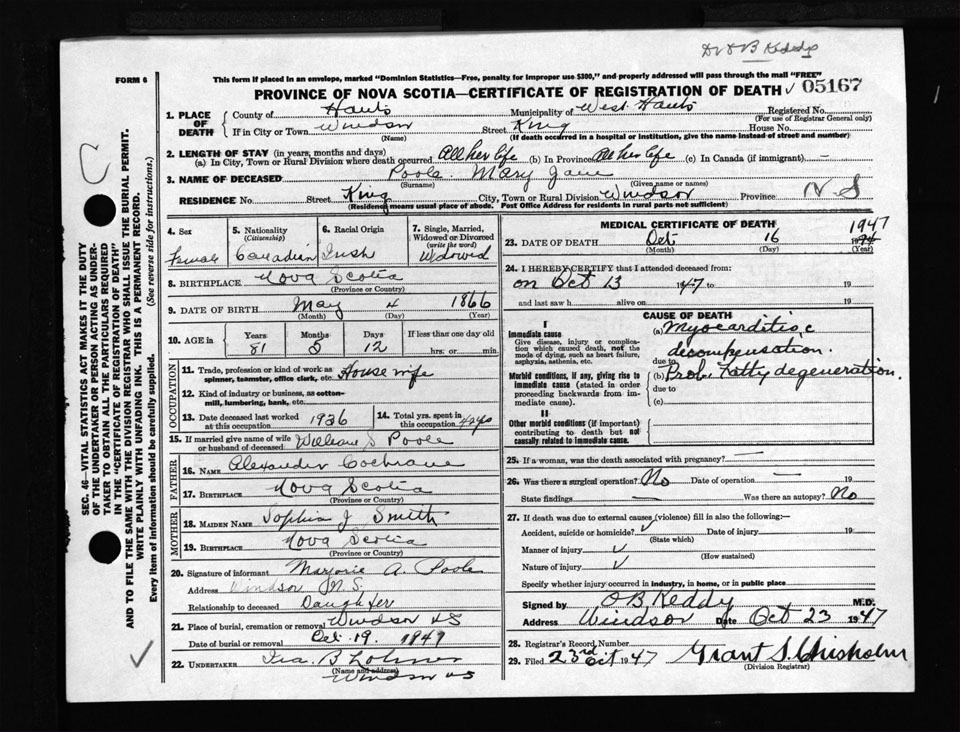 Dr O B Keddy
FORM 6
This form if placed in an envelope, marked "Dominion Statistics—Free, penalty for improper use $300," and properly addressed will pass through the mail "FREE"
PROVINCE OF NOVA SCOTIA—CERTIFICATE OF REGISTRATION OF DEATH ✓ 05167
1. PLACE OF DEATH { County of Hants Municipality of West Hants Registered No.
(For use of Registrar General only)
If in City or Town Windsor Street King House No.
(Name) (If death occurred in a hospital or institution, give the name instead of street and number)
2. LENGTH OF STAY (in years, months and days)
(a) In City, Town or Rural Division where death occurred All her life (b) In Province All her life (c) In Canada (if immigrant) —
3. NAME OF DECEASED Poole Mary Jane
(Surname) (Given name or names)
RESIDENCE No. Street King City, Town or Rural Division Windsor Province N. S
(Residence means usual place of abode. Post Office Address for residents in rural parts not sufficient)
4. Sex Female
5. Nationality (Citizenship) Canadian
6. Racial Origin Irish
7. Single, Married, Widowed or Divorced (write the word) Widowed
8. BIRTHPLACE Nova Scotia
(Province or Country)
9. DATE OF BIRTH May 4 1866
(Month) (Day) (Year)
10. AGE in { Years Months Days If less than one day old
81 5 12 hrs. or min.
OCCUPATION
11. Trade, profession or kind of work as spinner, teamster, office clerk, etc. House wife
12. Kind of industry or business, as cotton-mill, lumbering, bank, etc.
13. Date deceased last worked at this occupation 1936
14. Total yrs. spent in this occupation
15. If married give name of wife or husband of deceased William S Poole
FATHER
16. NAME Alexander Cochrane
17. BIRTHPLACE Nova Scotia
(Province or Country)
MOTHER
18. MAIDEN NAME Sophia J Smith
19. BIRTHPLACE Nova Scotia
(Province or Country)
20. Signature of informant Marjorie A. Poole
Address Windsor N.S.
Relationship to deceased Daughter
21. Place of burial, cremation or removal Windsor NS
Date of burial or removal Oct. 19. 1947
22. UNDERTAKER Ira. B
(Name and address)
Windsor NS
MEDICAL CERTIFICATE OF DEATH
23. DATE OF DEATH Oct 16 1947
(Month) (Day) (Year)
24. I HEREBY CERTIFY that I attended deceased from:
on Oct 13 1947 to 19
and last saw h alive on 19
CAUSE OF DEATH
I
Immediate cause
Give disease, injury or complication which caused death, not the mode of dying, such as heart failure, asphyxia, asthenia, etc.
(a) Myocarditis, c
decompensation.
due to
Morbid conditions, if any, giving rise to immediate cause (stated in order proceeding backwards from immediate cause).
(b) Prob. Fatty degeneration.
due to
(c)
II
Other morbid conditions (if important) contributing to death but not causally related to immediate cause.
25. If a woman, was the death associated with pregnancy? —
26. Was there a surgical operation? No Date of operation —
State findings Was there an autopsy? No
27. If death was due to external causes (violence) fill in also the following:—
Accident, suicide or homicide? ✓ Date of injury 19
(State which)
Manner of injury ✓
(How sustained)
Nature of injury ✓
Specify whether injury occurred in industry, in home, or in public place
Signed by OB Keddy M.D.
Address Windsor Date Oct 23 1947
28. Registrar's Record Number
29. Filed 23rd Oct 1947 Grant S. Chisholm
(Division Registrar)
C
SEC. 46—VITAL STATISTICS ACT MAKES IT THE DUTY
OF THE UNDERTAKER OR PERSON ACTING AS UNDER-
TAKER TO OBTAIN ALL THE PARTICULARS REQUIRED
IN THE "CERTIFICATE OF REGISTRATION OF DEATH"
AND TO FILE THE SAME WITH THE DIVISION REGISTRAR WHO SHALL ISSUE THE BURIAL PERMIT.
WRITE PLAINLY WITH UNFADING INK. THIS IS A PERMANENT RECORD.
Every item of information should be carefully supplied. (See reverse side for instructions.)